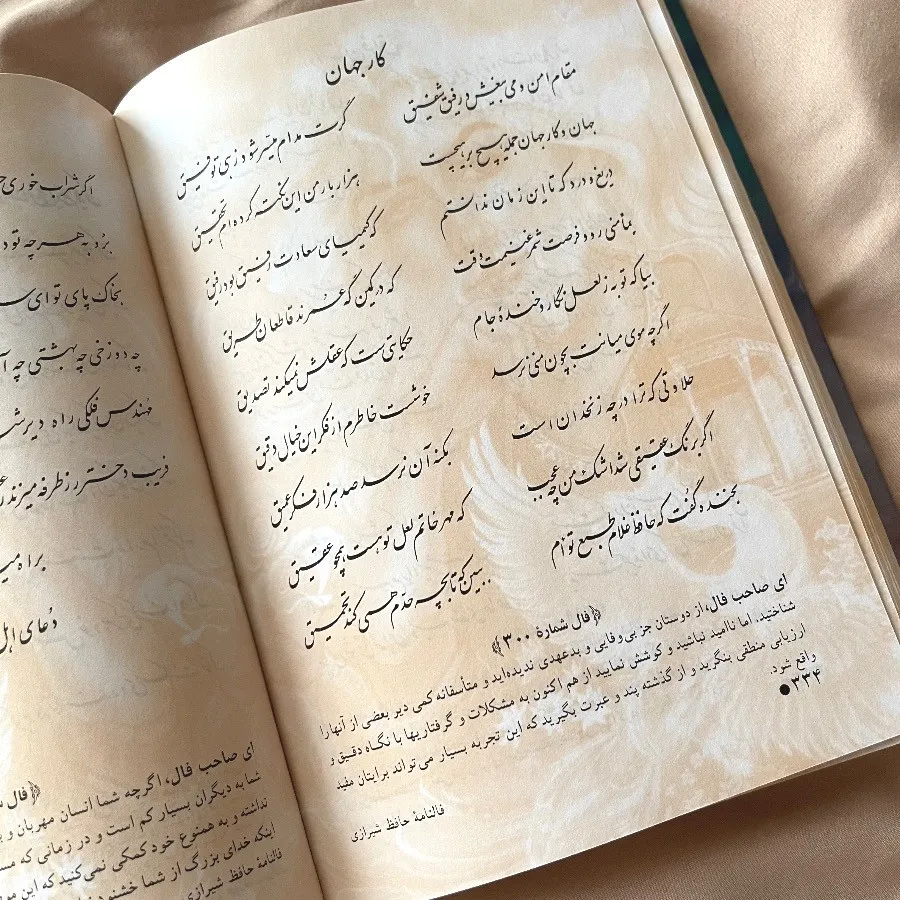 کار جهان
مقام امن و می بیغش و رفیق شفیق گرت مدام میسّر شود زهی توفیق
جهان و کار جهان جمله هیچ بر هیچست هزار بار من این نکته کرده ام تحقیق
دریغ و درد که تا این زمان ندانستم که کیمیای سعادت رفیق بود رفیق
بمأمنی رو و فرصت شمر غنیمت وقت که در کمین گه عمرند قاطعان طریق
بیا که توبه ز لعل نگار و خندهٔ جام حکایتی ست که عقلش نمیکند تصدیق
اگرچه موی میانت بچون منی نرسد خوشست خاطرم از فکر این خیال دقیق
حلاوتی که ترا در چه زنخدان است بکنه آن نرسد صد هزار فکر عمیق
اگر برنگ عقیقی شد اشک من چه عجب که مهر خاتم لعل تو هست همچو عقیق
بخنده گفت که حافظ غلام طبع توام ببین که تا بچه حدّم همی کند تحمیق
﴿فال شمارهٔ ۳۰۰﴾
ای صاحب فال، از دوستان جز بی‌وفایی و بدعهدی ندیده‌اید و متأسفانه کمی دیر بعضی از آنها را
شناختید. اما ناامید نباشید و کوشش نمایید از هم اکنون به مشکلات و گرفتاریها با نگاه دقیق و
ارزیابی منطقی بنگرید و از گذشته پند و عبرت بگیرید که این تجربه بسیار می‌تواند برایتان مفید
واقع شود.
۳۳۴●
فالنامهٔ حافظ شیرازی
اگر شراب خوری
برو به هر چه تو
بخاک پای تو ای
چه دوزخی چه بهشتی چه
مهندس فلکی راه دیر
فریب دختر رز طرفه میزند
براه
دعای اهل
﴿فال
ای صاحب فال، اگرچه شما انسان مهربان و
شما به دیگران بسیار کم است و در زمانی که
نداشته و به همنوع خود کمکی نمی‌کنید که این
اینکه خدای بزرگ از شما خشنود
فالنامهٔ حافظ شیرازی